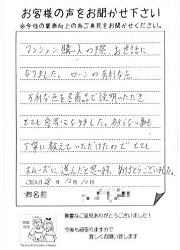 お客様の声をお聞かせ下さい
※今後の業務向上の為ご意見をお聞かせください。
マンション購入の際、お世話に
なりました。ローンの有利な点
不利な点を各商品で説明いただき
とても参考になりました。わからない事も
丁寧に教えていただけたので とても
スムーズに進んだと思います。ありがとうございました。
お名前
貴重なご意見ありがとうございました！
今後も頑張りますので
宜しくお願い致します